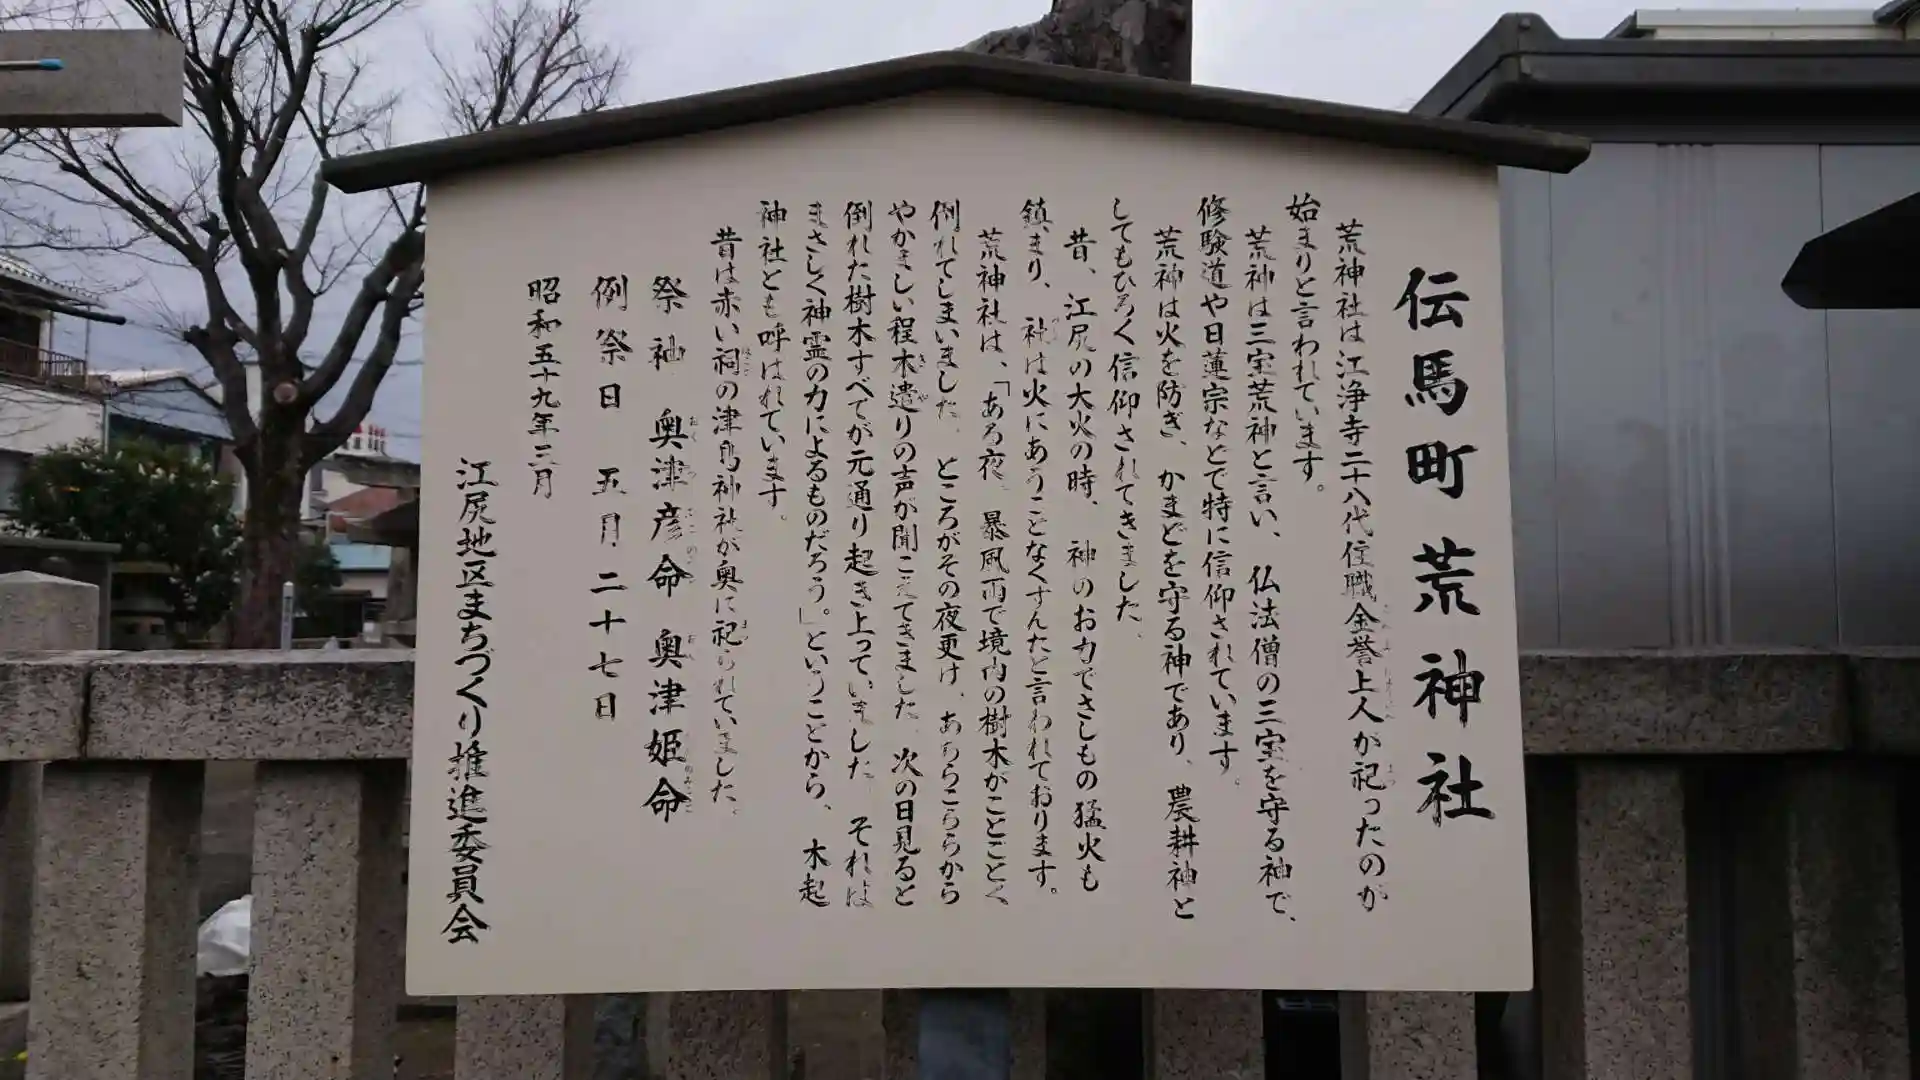 伝馬町荒神社
荒神社は江浄寺二十八代住職金誉上人が祀ったのが
始まりと言われています。
荒神は三宝荒神と言い、仏法僧の三宝を守る神で、
修験道や日蓮宗などで特に信仰されています。
荒神は火を防ぎ、かまどを守る神であり、農耕神と
してもひろく信仰されてきました。
昔、江尻の大火の時、神のお力でさしもの猛火も
鎮まり、社は火にあうことなくすんだと言われております。
荒神社は、「ある夜、暴風雨で境内の樹木がことごとく
倒れてしまいました。ところがその夜更け、あちらこちらから
やかましい程木遣りの声が聞こえてきました。次の日見ると
倒れた樹木すべてが元通り起き上っていました。それは
まさしく神霊の力によるものだろう。」ということから、木起
神社とも呼ばれています。
昔は赤い祠の津島神社が奥に祀られていました。
祭神 奥津彦命 奥津姫命
例祭日 五月二十七日
昭和五十九年三月
江尻地区まちづくり推進委員会